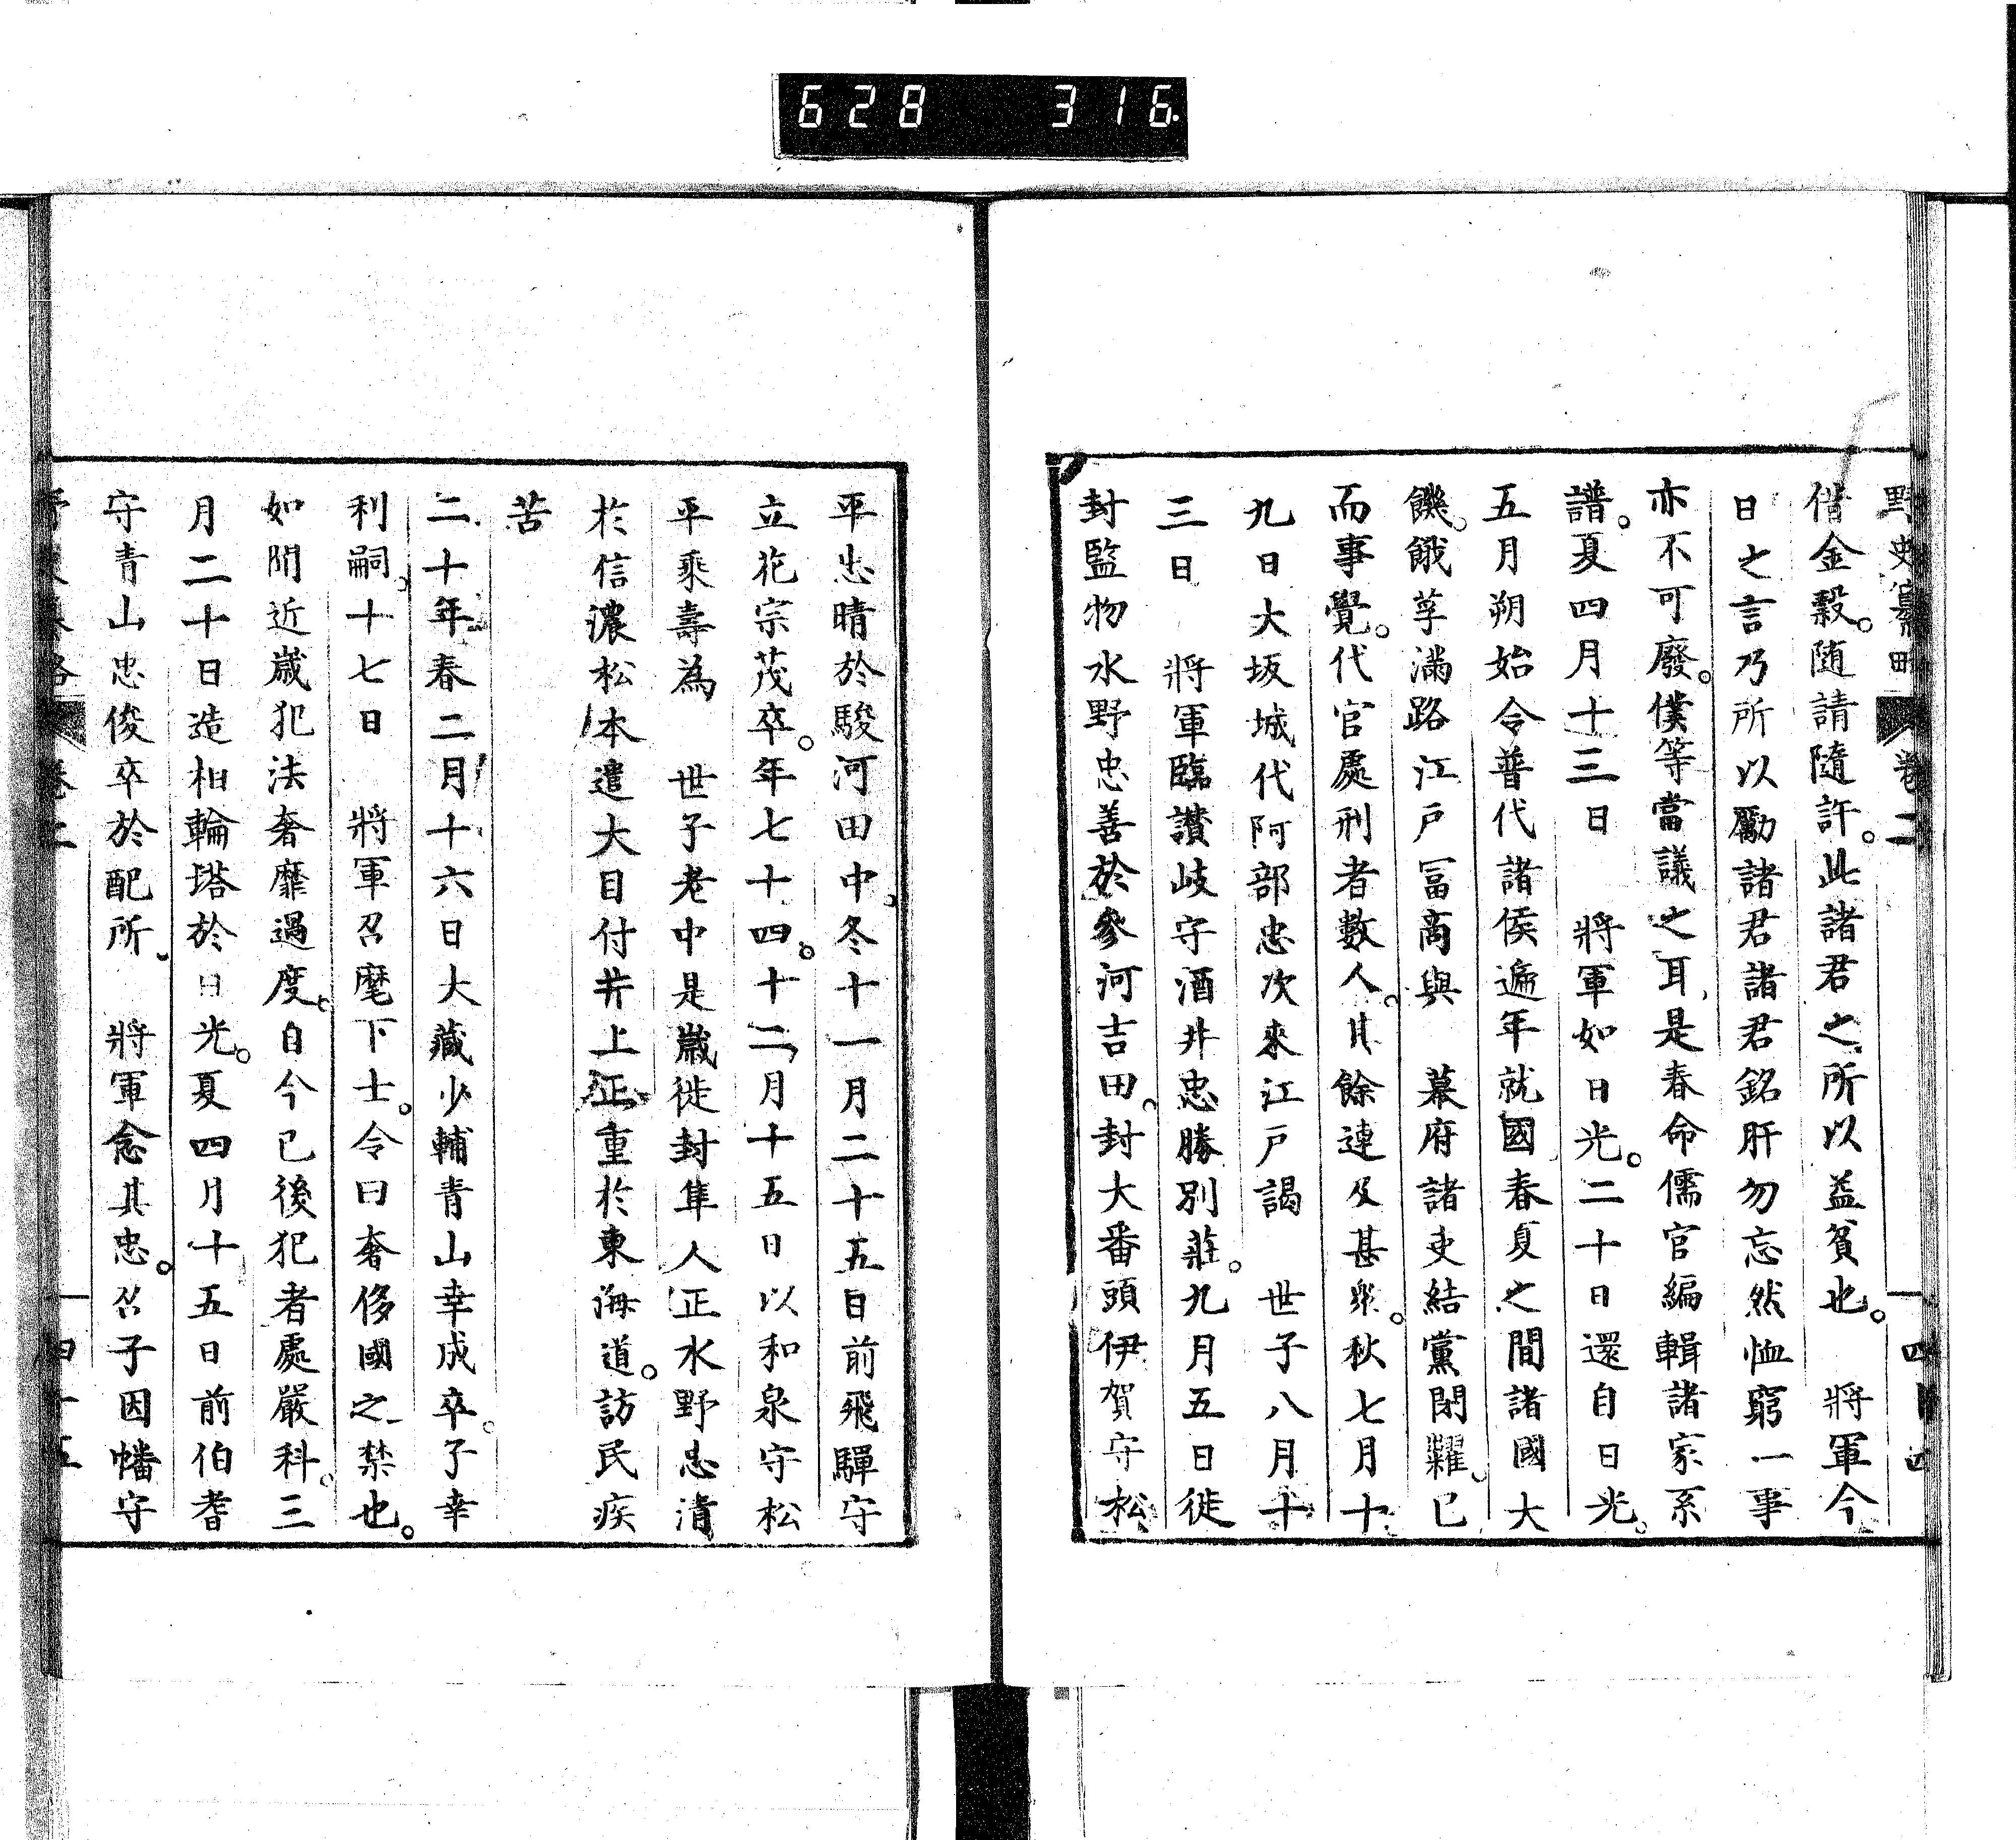 628 316
野史纂略 卷二 四十五
借金穀。随請隨許。此諸君之所以益貧也。 將軍今
日之言乃所以勵諸君諸君銘肝勿忘然恤窮一事
亦不可廢。僕等當議之耳是春命儒官編輯諸家系
譜。夏四月十三日 將軍如日光。二十日還自日光。
五月朔始令普代諸侯遍年就國春夏之間諸國大
饑。餓莩滿路江戸冨商與 幕府諸吏結黨閉糶。已
而事覺。代官處刑者數人。其餘連及甚衆。秋七月十
九日大坂城代阿部忠次來江戸謁 世子八月十
三日 將軍臨讃岐守酒井忠勝別莊。九月五日徙
封監物水野忠善於參河吉田。封大番頭伊賀守松
平忠晴於駿河田中。冬十一月二十五日前飛驒守
立花宗茂卒。年七十四。十二月十五日以和泉守松
平乘壽為 世子老中是歲徙封隼人正水野忠清
於信濃松本遣大目付井上正重於東海道。訪民疾
苦
二十年春二月十六日大藏少輔青山幸成卒。子幸
利嗣。十七日 將軍召麾下士。令曰奢侈國之禁也。
如聞近歲犯法奢靡過度。自今已後犯者處嚴科。三
月二十日造相輪塔於日光。夏四月十五日前伯耆
守青山忠俊卒於配所。 將軍念其忠。召子因幡守
卷二 四十五